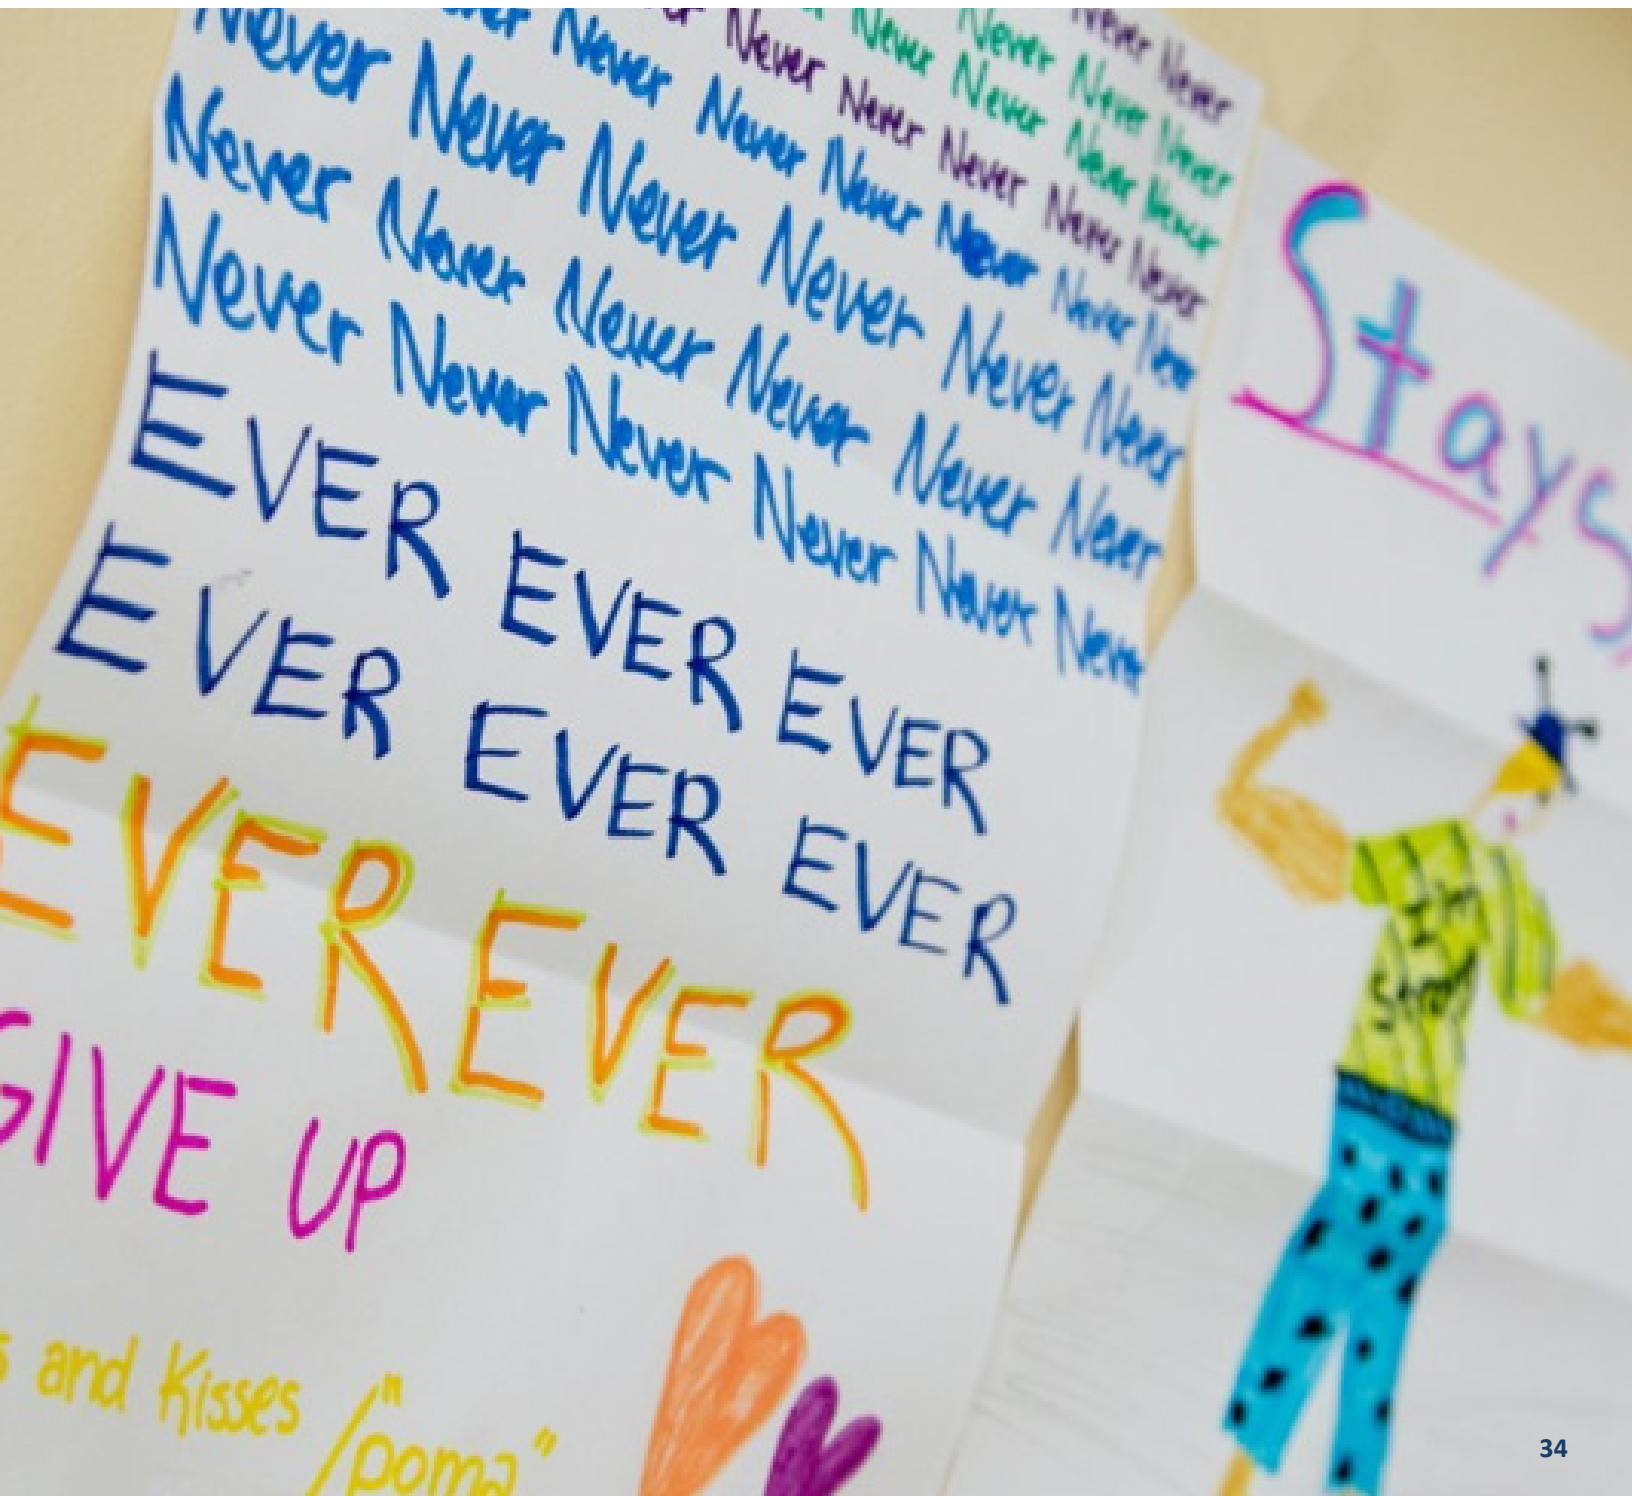 Never Never
Never Never Never
Never Never Never Never
Never Never Never Never Never
Never Never Never Never Never Never
Never Never Never Never Never Never
Never Never Never Never Never Never
Never Never Never Never Never Never
EVER EVER EVER
EVER EVER EVER
EVER EVER
GIVE UP
and Kisses
/"poma"
Stays
I'm
Strong
34